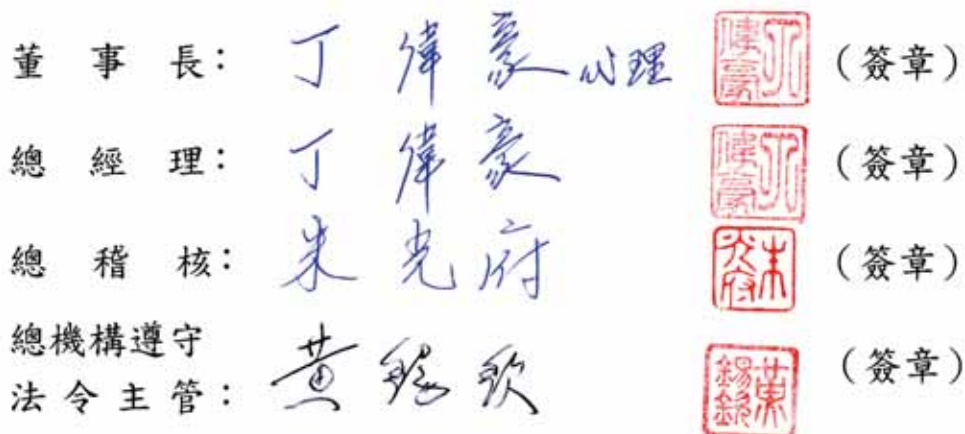 董事長：丁偉豪心理 丁偉豪（簽章）
總經理：丁偉豪 丁偉豪（簽章）
總稽核：朱光府 朱光府（簽章）
總機構遵守
法令主管：黃錫欽 黃錫欽（簽章）